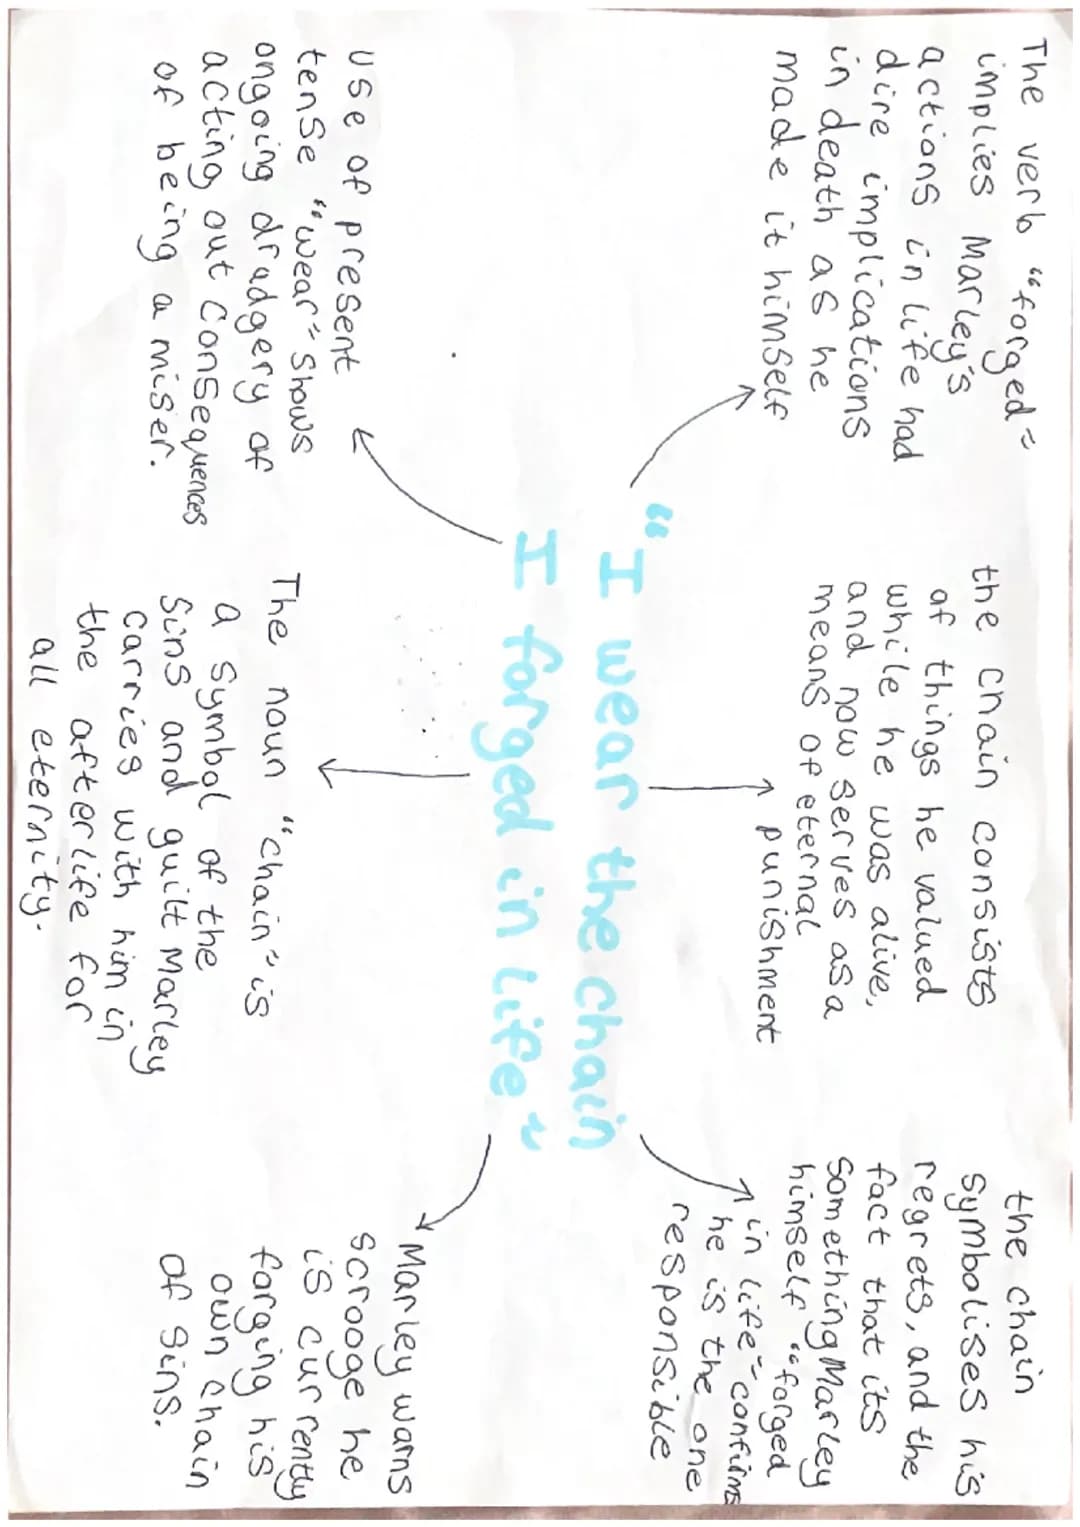 The verb "forged"
implies Marley's
actions in life had
dire implications
in death as he
made it himself
the chain consists
of things he valued
while he was alive,
and now serves as a
means of eternal
punishment
the chain
symbolises his
regrets, and the
fact that its
something Marley
himself "forged
in life" confirms
he is the one
responsible
"I wear the chain
I forged in life"
use of present
tense "wear" shows
ongoing drudgery of
acting out consequences
of being a miser.
The noun "chain" is
a symbol of the
sins and guilt Marley
carries with him in
the afterlife for
all eternity.
Marley warns
scrooge he
is currently
forging his
own chain
of sins.